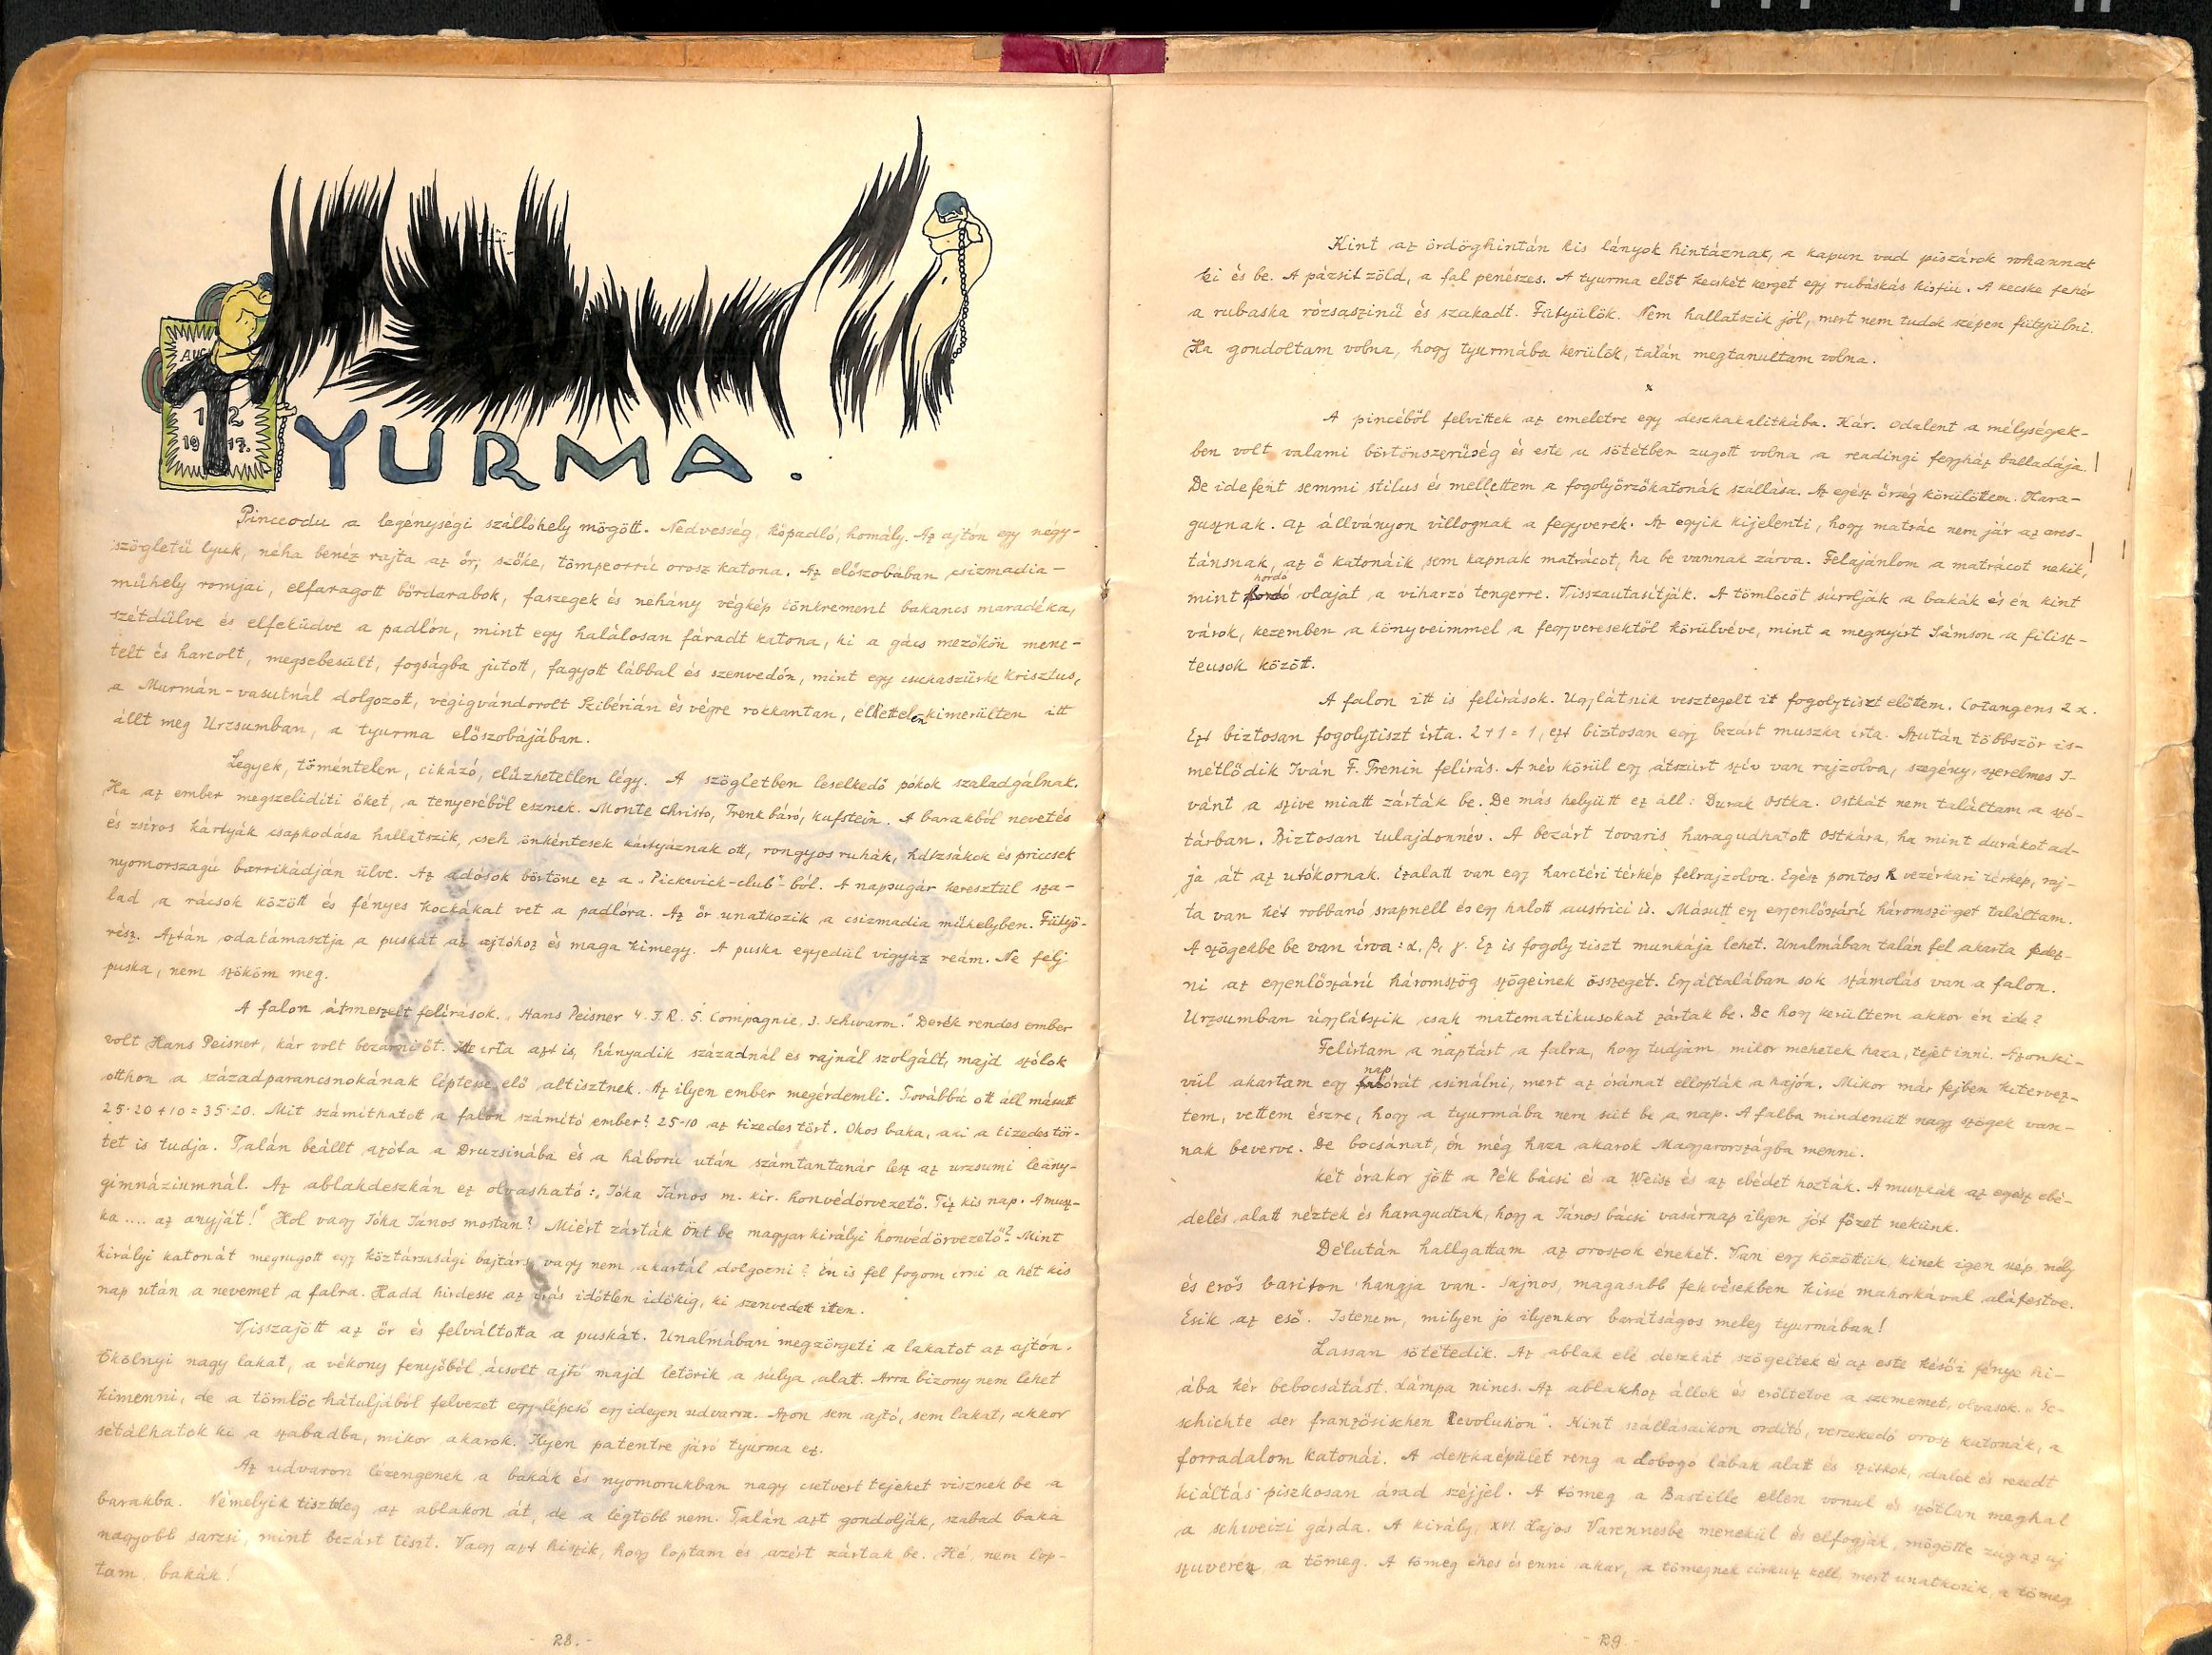 AUG
12
1917.
TYURMA.
Pinceodu a legénységi szállóhely mögött. Nedvesség, kőpadló, homály. Az ajtón egy négy-
szögletű lyuk, néha benéz rajta az őr, szőke, tömpeorrú orosz katona. Az előszobában csizmadia-
műhely romjai, elfaragott bőrdarabok, faszegek és nehány végkép tönkrement bakancs maradéka,
szétdűlve és elfeküdve a padlón, mint egy halálosan fáradt katona, ki a gács mezőkön mene-
telt és harcolt, megsebesült, fogságba jutott, fagyott lábbal és szenvedőn, mint egy csukaszürke Krisztus,
a Murmán-vasutnál dolgozott, végigvándorolt Szibérián és végre rokkantan, élettelen kimerülten itt
állt meg Urzsumban, a tyurma előszobájában.
Legyek, töméntelen, cikázó, elűzhetetlen légy. A szögletben leselkedő pókok szaladgálnak.
Ha az ember megszelidíti őket, a tenyeréből esznek. Monte Christo, Trenk báró, Kufstein. A barakból nevetés
és zsíros kártyák csapkodása hallatszik, cseh önkéntesek kártyáznak ott, rongyos ruhák, hátzsákok és priccsek
nyomorszagú barrikádján ülve. Az adósok börtöne ez a „Pickwick-club"-ból. A napsugár keresztül sza-
lad a rácsok között és fényes kockákat vet a padlóra. Az őr unatkozik a csizmadia műhelyben. Fütyö-
rész. Aztán odatámasztja a puskát az ajtóhoz és maga kimegy. A puska egyedül vigyáz reám. Ne félj
puska, nem szököm meg.
A falon átmeszelt felírások. „Hans Peisner 4. I. R. 5. Compagnie, 3. Schwarm." Derék rendes ember
volt Hans Peisner, kár volt bezárni őt. Ide irta azt is, hányadik századnál és rajnál szolgált, majd szólok
otthon a századparancsnokának léptesse elő altisztnek. Az ilyen ember megérdemli. Továbbá ott áll másutt
25·20+10=35·20. Mit számíthatott a falon számító ember? 25·10 az tizedes tört. Okos baka, aki a tizedes tör-
tet is tudja. Talán beállt azóta a Druzsinába és a háború után számtantanár lesz az urzsumi leány-
gimnáziumnál. Az ablakdeszkán ez olvasható: „Jóka János m. kir. honvédőrvezető. Tiz kis nap. A musz-
ka .... az anyját!" Hol vagy Jóka János mostan? Miért zárták Önt be magyar királyi honvédőrvezető? Mint
királyi katonát megrugott egy köztársasági bajtárs, vagy nem akartál dolgozni? Én is fel fogom irni a hét kis
nap után a nevemet a falra. Hadd hirdesse az írás időtlen időkig, ki szenvedett itten.
Visszajött az őr és felváltotta a puskát. Unalmában megzörgeti a lakatot az ajtón.
Ökölnyi nagy lakat, a vékony fenyőből ácsolt ajtó majd letörik a súlya alatt. Arra bizony nem lehet
kimenni, de a tömlöc hátuljából felvezet egy lépcső egy idegen udvarra. Azon sem ajtó, sem lakat, akkor
sétálhatok ki a szabadba, mikor akarok. Ilyen patentre járó tyurma ez.
Az udvaron lézengenek a bakák és nyomorukban nagy csetvert tejeket visznek be a
barakba. Némelyik tiszteleg az ablakon át, de a legtöbb nem. Talán azt gondolják, szabad baka
nagyobb sarzsi, mint bezárt tiszt. Vagy azt hiszik, hogy loptam és azért zártak be. Hé, nem lop-
tam, bakák!
28.-
Kint az ördöghintán kis lányok hintáznak, a kapun vad piszárok rohannak
ki és be. A pázsit zöld, a fal penészes. A tyurma előtt kecskét kerget egy rubáskás kisfiú. A kecske fehér
a rubaska rózsaszinű és szakadt. Fütyülök. Nem hallatszik jól, mert nem tudok szépen fütyülni.
Ha gondoltam volna, hogy tyurmába kerülök, talán megtanultam volna.
x
A pincéből felvittek az emeletre egy deszkakalitkába. Kár. Odalent a mélységek-
ben volt valami börtönszerűség és este a sötétben zugott volna a readingi fegyház balladája!
De idefent semmi stílus és mellettem a fogolyőrzőkatonák szállása. Az egész őrség körülöttem. Hara-
gusznak. Az állványon villognak a fegyverek. Az egyik kijelenti, hogy matrác nem jár az ares-
tánsnak, az ő katonáik sem kapnak matrácot, ha be vannak zárva. Felajánlom a matrácot nekik,!
hordó
mint olaját a viharzó tengerre. Visszautasítják. A tömlöcöt súrolják a bakák és én kint
várok, kezemben a könyveimmel a fegyveresektől körülvéve, mint a megnyírt Sámson a filisz-
teusok között.
A falon itt is felírások. Ugylátszik vesztegelt it fogolytiszt előttem. Cotangens 2x.
Ezt biztosan fogolytiszt írta. 2+1=1, ezt biztosan egy bezárt muszka irta. Azután többször is-
métlődik Iván F. Frenin felírás. A név körül egy átszúrt szív van rajzolva, szegény, szerelmes I-
vánt a szive miatt zárták be. De más helyütt ez áll: Durak Ostka. Ostkát nem találtam a szó-
tárban. Biztosan tulajdonnév. A bezárt tovaris haragudhatott Ostkára, ha mint durákot ad-
ja át az utókornak. Ezalatt van egy harctéri térkép felrajzolva. Egész pontos vezérkari térkép, raj-
ta van két robbanó srapnell és egy halott austrici is. Másutt egy egyenlőszárú háromszöget találtam.
A szögekbe be van írva: α, β, γ. Ez is fogoly tiszt munkája lehet. Unalmában talán fel akarta fedez-
ni az egyenlőszárú háromszög szögeinek összegét. Egyáltalában sok számolás van a falon.
Urzsumban úgylátszik csak matematikusokat zártak be. De hogy kerültem akkor én ide?
Felírtam a naptárt a falra, hogy tudjam, mikor mehetek haza, tejet inni. Azonki-
nap
vül akartam egy órát csinálni, mert az órámat ellopták a hajón. Mikor már fejben kitervez-
tem, vettem észre, hogy a tyurmába nem süt be a nap. A falba mindenütt nagy szögek van-
nak beverve. De bocsánat, én még haza akarok Magyarországba menni.
Két órakor jött a Pék bácsi és a Weisz és az ebédet hozták. A muszkák az egész ebé-
delés alatt néztek és haragudtak, hogy a János bácsi vasárnap ilyen jót főzet nekünk.
Délután hallgattam az oroszok énekét. Van egy közöttük, kinek igen szép mély
és erős bariton hangja van. Sajnos, magasabb fekvésekben kissé mahorkával aláfestve.
Esik az eső. Istenem, milyen jó ilyenkor barátságos meleg tyurmában!
Lassan sötétedik. Az ablak elé deszkát szögeltek és az este késői fénye hi-
ába kér bebocsátást. Lámpa nincs. Az ablakhoz állok és erőltetve a szememet, olvasok. „Ge-
schichte der französischen Revolution". Kint szállásaikon ordító, verekedő orosz katonák, a
forradalom katonái. A deszkaépület reng a dobogó lábak alatt és szitkok, dalok és rekedt
kiáltás piszkosan árad széjjel. A tömeg a Bastille ellen vonul és szótlan meghal
a schweizi gárda. A király, XVI. Lajos Varennesbe menekül és elfogják, mögötte zúg az új
szuverén, a tömeg. A tömeg éhes és enni akar, a tömegnek cirkusz kell, mert unatkozik, a tömeg
29.